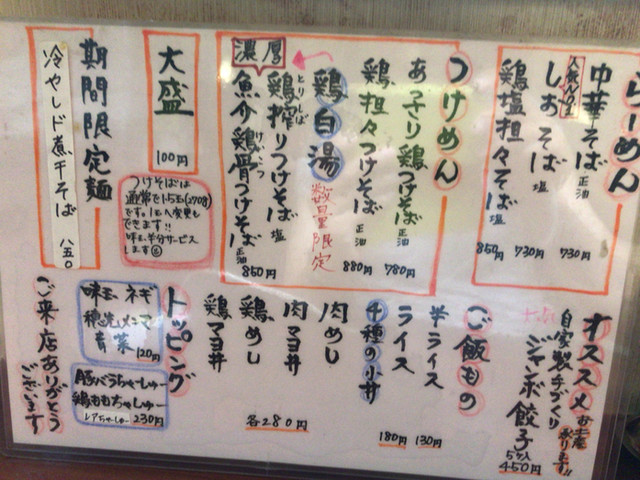 らーめん
中華そば 正油 730円
人気No.1
しおそば 塩 730円
鶏塩担々そば 塩 850円
つけめん
あっさり鶏つけそば 正油 780円
鶏担々つけそば 正油 880円
濃厚
鶏白湯 数量限定
とりしぼ
鶏搾りつけそば 塩
けいこつ
魚介鶏骨つけそば 正油
850円
大盛
100円
つけそばは
通常で1.5玉(270g)
です。1玉へ変更も
できます!!
味玉半分サービス
します
期間限定麺
冷やしド煮干そば 八五〇
オススメ
お土産
承ります!!
自家製手づくり
ジャンボ餃子
5ケ入
450円
ご飯もの
半ライス 130円
ライス 180円
4種の小丼
肉めし
肉マヨ丼
鶏めし
鶏マヨ丼
各280円
トッピング
味玉 ネギ
穂先メンマ
青菜 120円
豚バラちゃーしゅー
鶏ももちゃーしゅー
レアちゃーしゅー 230円
ご来店ありがとう
ございます